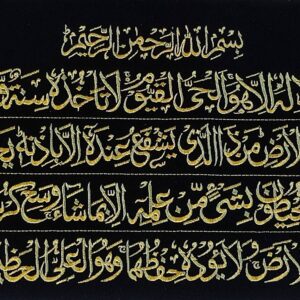 بِسْمِ اللهِ الرَّحْمٰنِ الرَّحِيْمِ
اِلٰهَ اِلَّا هُوَ اَلْحَيُّ الْقَيُّوْمُ لَا تَاْخُذُهٗ سِنَةٌ وَّ
الْاَرْضِ مَنْ ذَا الَّذِيْ يَشْفَعُ عِنْدَهٗ اِلَّا بِاِذْنِهٖ يَعْ
يُحِيْطُوْنَ بِشَيْءٍ مِّنْ عِلْمِهٖ اِلَّا بِمَا شَاءَ وَسِعَ كُرْ
الْاَرْضَ وَلَا يَؤُدُهٗ حِفْظُهُمَا وَهُوَ الْعَلِيُّ الْعَظِ